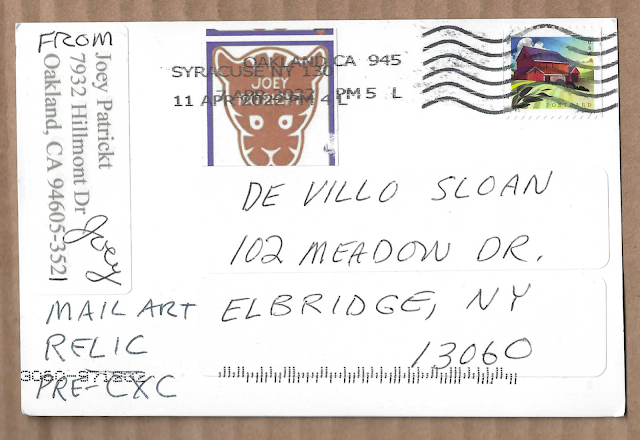 FROM
Joey Patrickt
7932 Hillmont Dr
Oakland, CA 94605-3521
Joey
OAKLAND CA 945
SYRACUSE NY 130
JOEY
11 APR 2022 PM 4 L
PM 5 L
POSTCARD
DE VILLO SLOAN
102 MEADOW DR.
ELBRIDGE, NY
13060
MAIL ART
RELIC
PRE-CXC